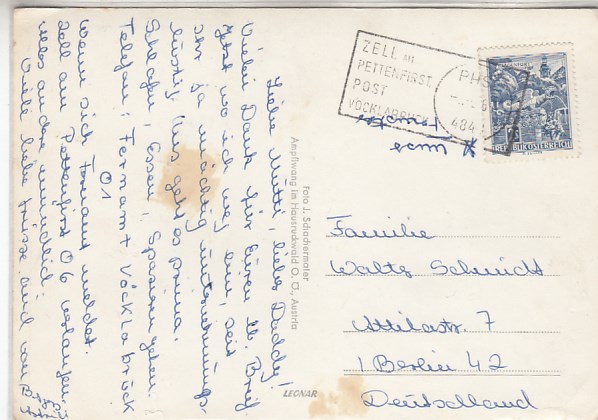 Liebe Mutti, lieber Daddy!
Vielen Dank für Euren lb. Brief
jetzt wo ich weg bin, seid
ihr ja mächtig unternehmungs-
lustig. Uns geht es prima.
Schlafen, Essen, Spazierengehen.
Telefon: Fernamt Vöcklabruck
01
wenn sich Fernamt meldet.
Zell am Pettenfirst 06 verlangen,
alles andere mündlich.
Viele liebe Grüsse sind von
Foto J. Schachermaier
Ampflwang im Hausruckwald O. Ö., Austria
LEONAR
ZELL am
PETTENFIRST,
POST
VÖCKLABRUCK
484
REPUBLIK ÖSTERREICH
Familie
Waltz Schmidt
Attilastr. 7
1 Berlin 42
Deutschland